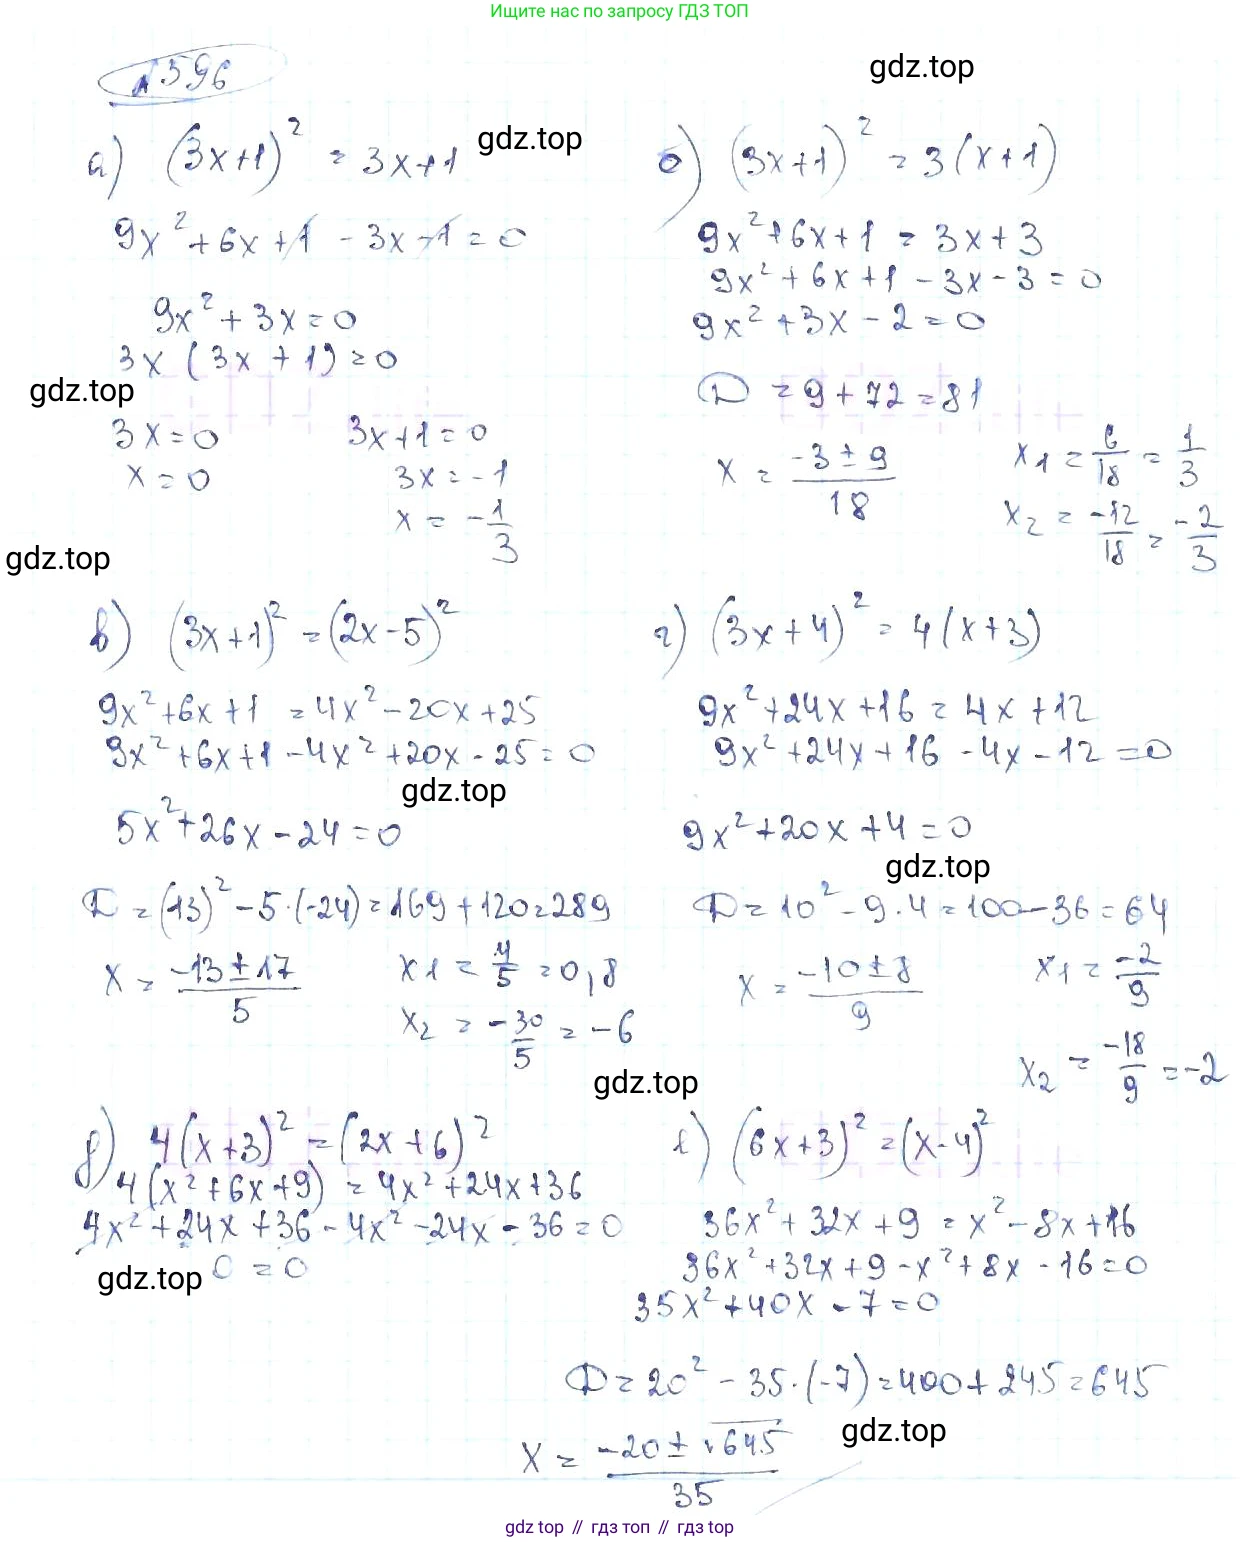 Ищите нас по запросу ГДЗ ТОП
№ 596
gdz.top
а) (3x+1)² = 3x+1
gdz.top
9x² + 6x + 1 - 3x - 1 = 0
9x² + 3x = 0
3x (3x + 1) = 0
gdz.top
3x = 0    3x+1 = 0
x = 0    3x = -1
x = -1/3
gdz.top
б) (3x+1)² = 3(x+1)
9x² + 6x + 1 = 3x + 3
9x² + 6x + 1 - 3x - 3 = 0
9x² + 3x - 2 = 0
D = 9 + 72 = 81
x = (-3 ± 9)/18    x1 = 6/18 = 1/3
x2 = -12/18 = -2/3
в) (3x+1)² = (2x-5)²
9x² + 6x + 1 = 4x² - 20x + 25
9x² + 6x + 1 - 4x² + 20x - 25 = 0
gdz.top
5x² + 26x - 24 = 0
D = (13)² - 5·(-24) = 169 + 120 = 289
x = (-13 ± 17)/5    x1 = 4/5 = 0,8
x2 = -30/5 = -6
gdz.top
г) (3x+4)² = 4(x+3)
9x² + 24x + 16 = 4x + 12
9x² + 24x + 16 - 4x - 12 = 0
9x² + 20x + 4 = 0
gdz.top
D = 10² - 9·4 = 100 - 36 = 64
x = (-10 ± 8)/9    x1 = -2/9
x2 = -18/9 = -2
д) 4(x+3)² = (2x+6)²
4(x² + 6x + 9) = 4x² + 24x + 36
4x² + 24x + 36 - 4x² - 24x - 36 = 0
gdz.top 0 = 0
е) (6x+3)² = (x-4)²
36x² + 32x + 9 = x² - 8x + 16
36x² + 32x + 9 - x² + 8x - 16 = 0
35x² + 40x - 7 = 0
D = 20² - 35·(-7) = 400 + 245 = 645
gdz.top
x = (-20 ± √645)/35
gdz top // гдз топ // gdz top